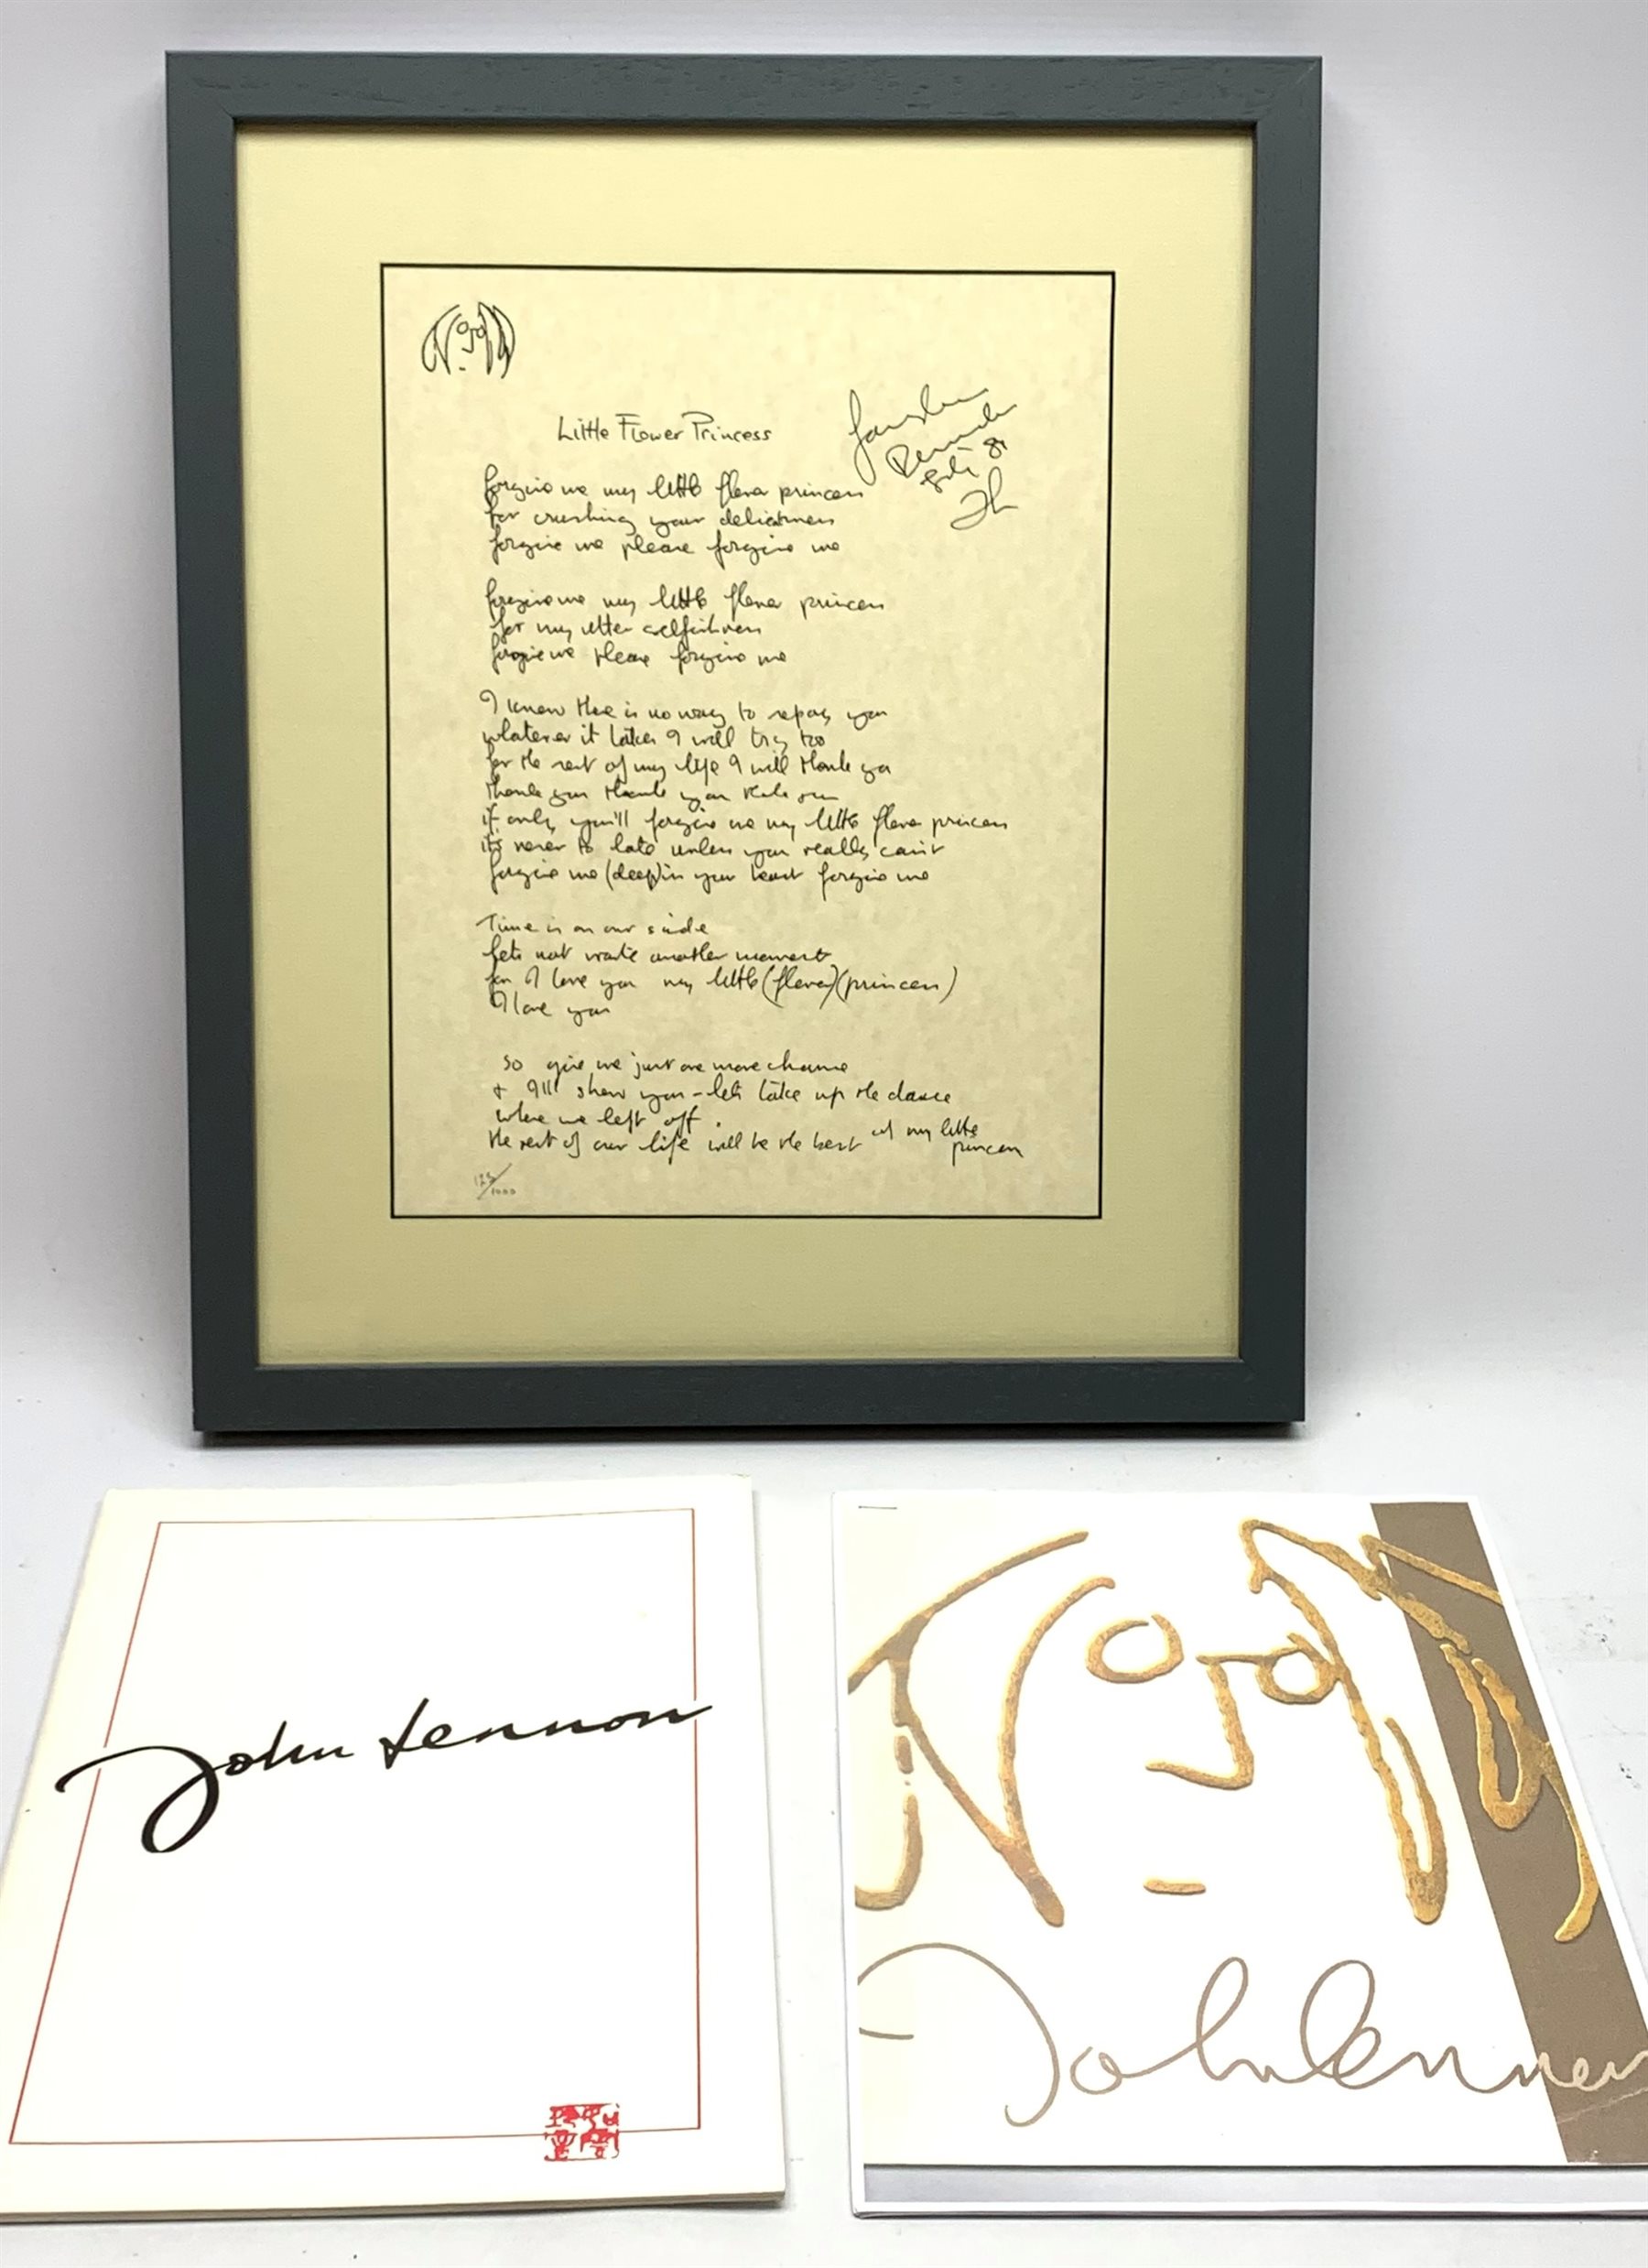 Little Flower Princess
forgive me my little flower princess
for crushing your delicatness
forgive me please forgive me
forgive me my little flower princess
for my utter selfishness
forgive me please forgive me
I know there is no way to repay you
whatever it takes I will try too
for the rest of my life I will thank you
thank you thank you thank you
if only you'll forgive me my little flower princess
it's never to late unless you really can't
forgive me (deep) in your heart forgive me
Time is on our side
lets not waste another moment
for I love you my little (flower) (princess)
I love you
so give me just one more chance
& I'll show you - lets take up the dance
where we left off.
the rest of our life will be the best
my little
princess
125/1000
John Lennon
John Lennon